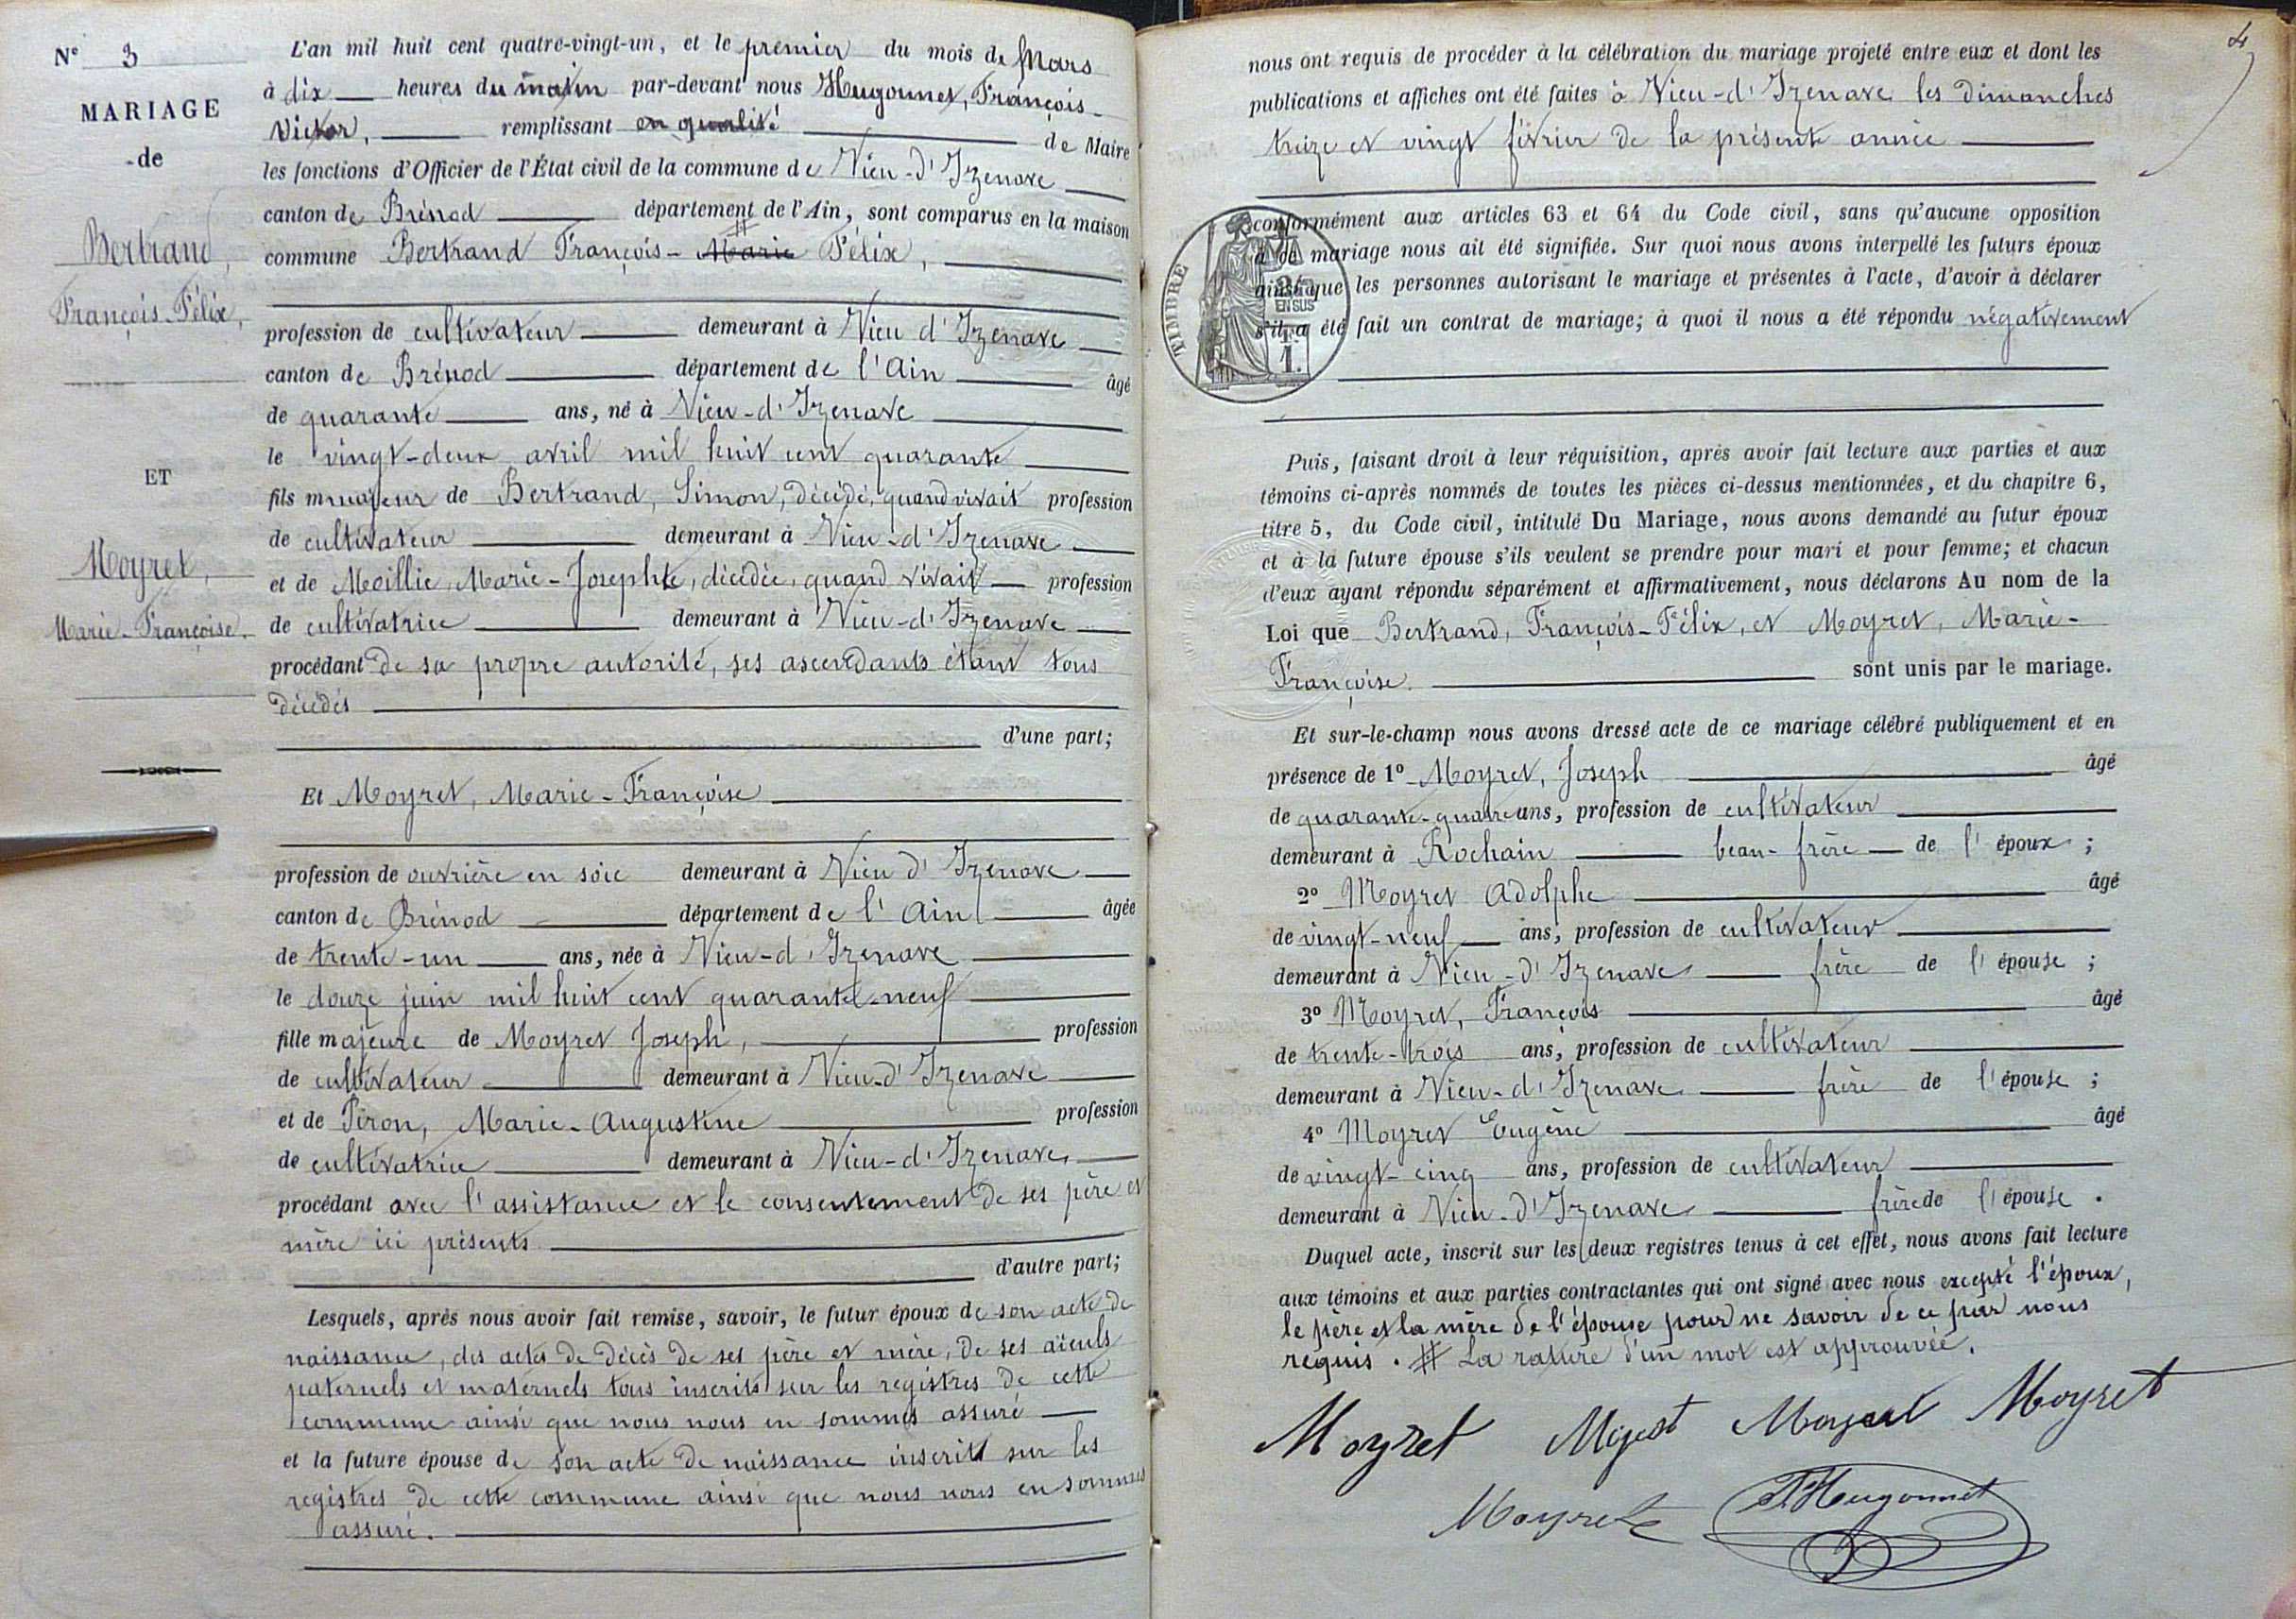 N° 3
MARIAGE
de
Bertrand,
François-Félix,
ET
Moyret,
Marie-Françoise.
L'an mil huit cent quatre-vingt-un, et le premier du mois de Mars
à dix heures du matin par-devant nous Hugonnet, François-
Victor, remplissant en qualité de Maire
les fonctions d'Officier de l'État civil de la commune de Vieu-d'Izenave
canton de Brénod département de l'Ain, sont comparus en la maison
commune Bertrand François-Marie Félix,
profession de cultivateur demeurant à Vieu d'Izenave
canton de Brénod département de l'Ain âgé
de quarante ans, né à Vieu-d'Izenave
le vingt-deux avril mil huit cent quarante
fils majeur de Bertrand, Simon, décédé, quand vivait profession
de cultivateur demeurant à Vieu-d'Izenave
et de Meillie, Marie-Josephte, décédée, quand vivait profession
de cultivatrice demeurant à Vieu-d'Izenave
procédant de sa propre autorité, ses ascendants étant tous
décédés
d'une part;
Et Moyret, Marie-Françoise
profession de ouvrière en soie demeurant à Vieu d'Izenave
canton de Brénod département de l'Ain âgée
de trente-un ans, née à Vieu-d'Izenave
le douze juin mil huit cent quarante-neuf
fille majeure de Moyret Joseph, profession
de cultivateur demeurant à Vieu-d'Izenave
et de Piron, Marie-Augustine profession
de cultivatrice demeurant à Vieu-d'Izenave,
procédant avec l'assistance et le consentement de ses père et
mère ici présents
d'autre part;
Lesquels, après nous avoir fait remise, savoir, le futur époux de son acte de
naissance, des actes de décès de ses père et mère, de ses aïeuls
paternels et maternels tous inscrits sur les registres de cette
commune ainsi que nous nous en sommes assuré
et la future épouse de son acte de naissance inscrit sur les
registres de cette commune ainsi que nous nous en sommes
assuré.
4
nous ont requis de procéder à la célébration du mariage projeté entre eux et dont les
publications et affiches ont été faites à Vieu-d'Izenave les dimanches
treize et vingt février de la présente année
conformément aux articles 63 et 64 du Code civil, sans qu'aucune opposition
à ce mariage nous ait été signifiée. Sur quoi nous avons interpellé les futurs époux
ainsi que les personnes autorisant le mariage et présentes à l'acte, d'avoir à déclarer
s'il a été fait un contrat de mariage; à quoi il nous a été répondu négativement
TIMBRE
EN SUS
1.
Puis, faisant droit à leur réquisition, après avoir fait lecture aux parties et aux
témoins ci-après nommés de toutes les pièces ci-dessus mentionnées, et du chapitre 6,
titre 5, du Code civil, intitulé Du Mariage, nous avons demandé au futur époux
et à la future épouse s'ils veulent se prendre pour mari et pour femme; et chacun
d'eux ayant répondu séparément et affirmativement, nous déclarons Au nom de la
Loi que Bertrand, François-Félix, et Moyret, Marie-
Françoise. sont unis par le mariage.
Et sur-le-champ nous avons dressé acte de ce mariage célébré publiquement et en
présence de 1° Moyret, Joseph âgé
de quarante-quatre ans, profession de cultivateur
demeurant à Rochain beau-frère de l'époux;
2° Moyret Adolphe âgé
de vingt-neuf ans, profession de cultivateur
demeurant à Vieu-d'Izenave frère de l'épouse;
3° Moyret, François âgé
de trente-trois ans, profession de cultivateur
demeurant à Vieu-d'Izenave frère de l'épouse;
4° Moyret Eugène âgé
de vingt-cinq ans, profession de cultivateur
demeurant à Vieu-d'Izenave frère de l'épouse.
Duquel acte, inscrit sur les deux registres tenus à cet effet, nous avons fait lecture
aux témoins et aux parties contractantes qui ont signé avec nous excepté l'époux,
le père et la mère de l'épouse pour ne savoir de ce par nous
requis. # La rature d'un mot est approuvée.
Moyret Moyret Moyret
Moyret Hugonnet